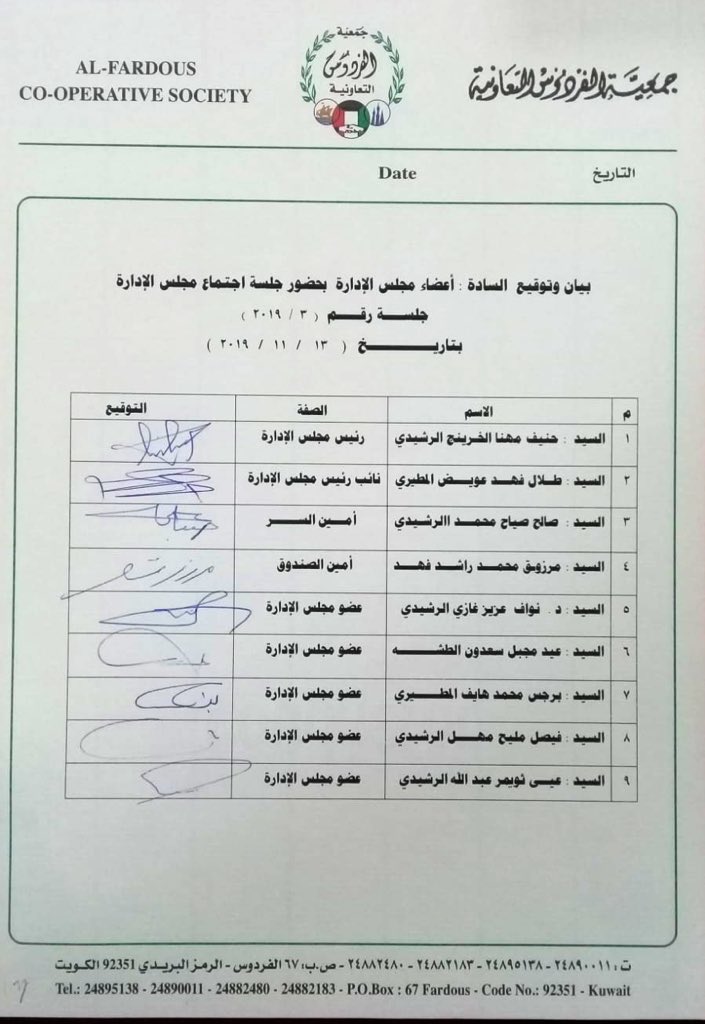 AL-FARDOUS
CO-OPERATIVE SOCIETY
جمعية
الفردوس
التعاونية
جمعية الفردوس التعاونية
Date
التاريخ
بيان وتوقيع السادة : أعضاء مجلس الإدارة بحضور جلسة اجتماع مجلس الإدارة
جلسة رقم ( ٣ / ٢٠١٩ )
بتاريخ ( ١٣ / ١١ / ٢٠١٩ )
م الاسم الصفة التوقيع
١ السيد : حنيف مهنا الخرينج الرشيدي رئيس مجلس الإدارة
٢ السيد : طلال فهد عويض المطيري نائب رئيس مجلس الإدارة
٣ السيد : صالح صياح محمد االرشيدي أمين السر
٤ السيد : مرزوق محمد راشد فهد أمين الصندوق
٥ السيد : د . نواف عزيز غازي الرشيدي عضو مجلس الإدارة
٦ السيد : عيد مجبل سعدون الطشه عضو مجلس الإدارة
٧ السيد : برجس محمد هايف المطيري عضو مجلس الإدارة
٨ السيد : فيصل مليح مهل الرشيدي عضو مجلس الإدارة
٩ السيد : عيى ثويمر عبد الله الرشيدي عضو مجلس الإدارة
ت : ٢٤٨٩٠٠١١ - ٢٤٨٩٥١٣٨ - ٢٤٨٨٢١٨٣ - ٢٤٨٨٢٤٨٠ - ص.ب: ٦٧ الفردوس - الرمز البريدي 92351 الكويت
Tel.: 24895138 - 24890011 - 24882480 - 24882183 - P.O.Box : 67 Fardous - Code No.: 92351 - Kuwait